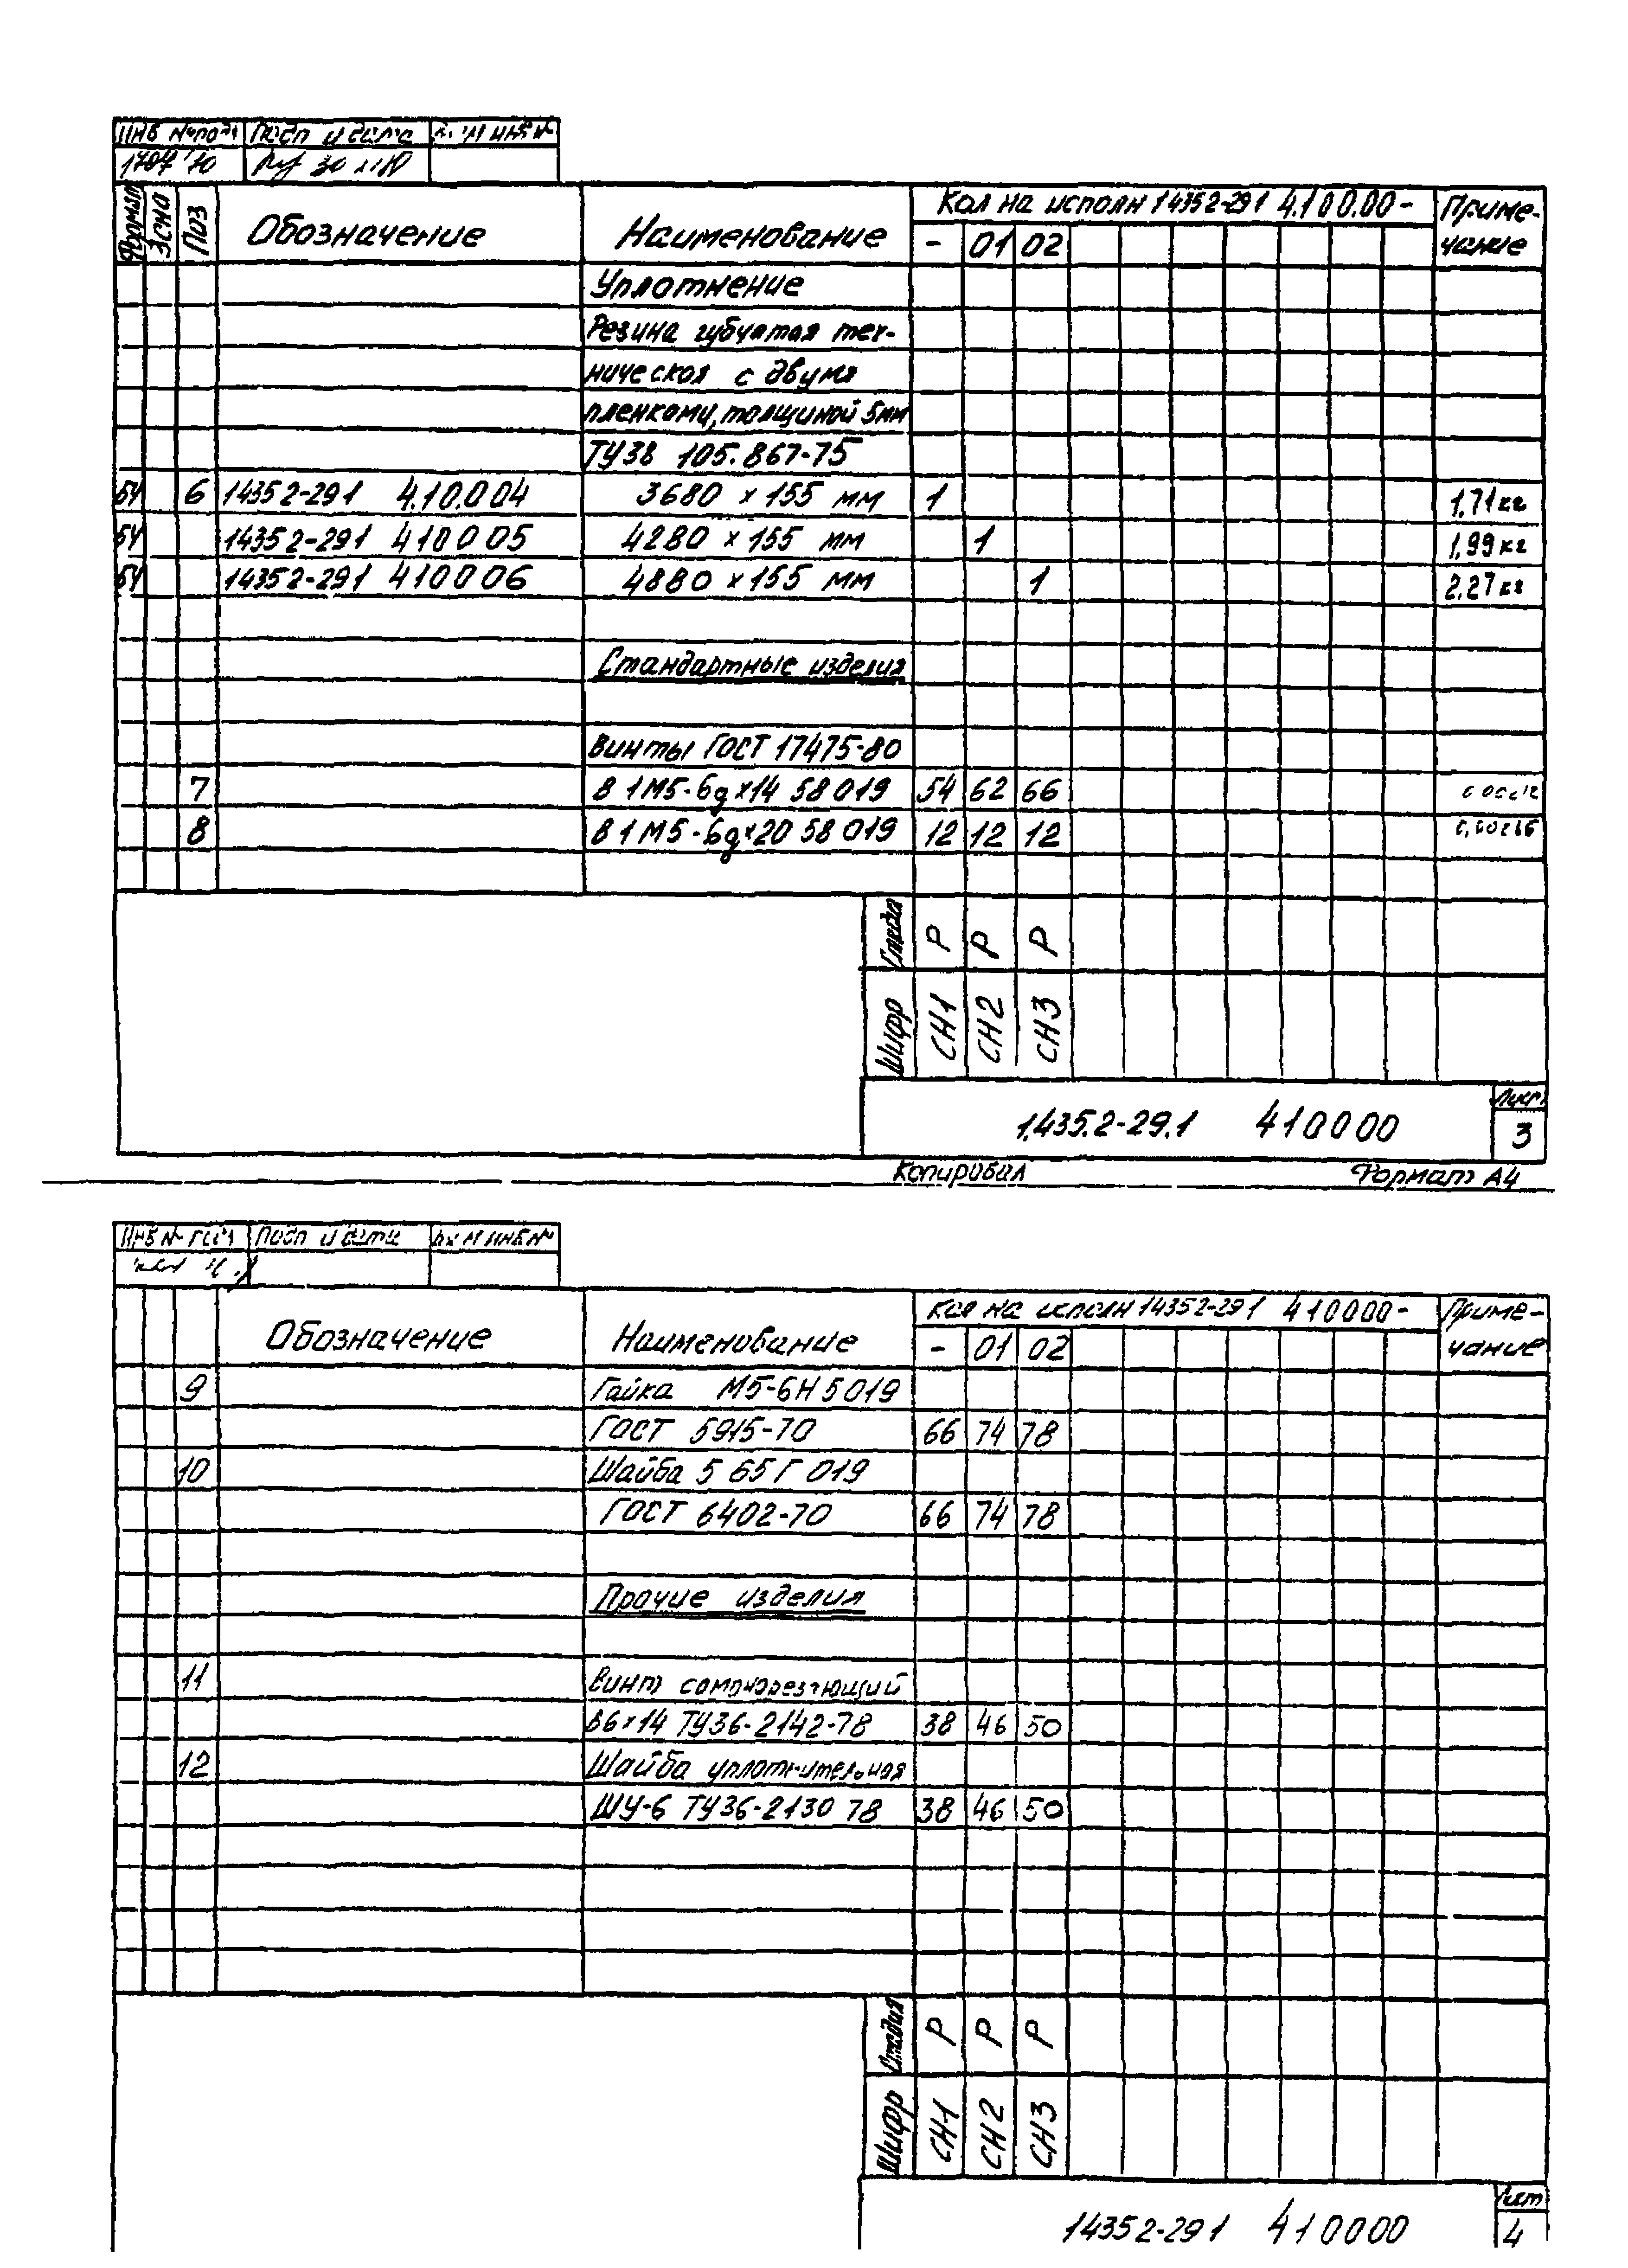 Подп и дата
Формат Зона Поз Обозначение Наименование Кол на исполн 14352-291 4.100.00- Приме-чание
- 01 02
Уплотнение
Резина губчатая тех-
ническая с двумя
пленками, толщиной 5мм
ТУ38 105.867-75
БЧ 6 14352-291 4.10.0 04 3680 × 155 мм 1 1,71кг
БЧ 14352-291 410005 4280 × 155 мм 1 1,99кг
БЧ 14352-291 410006 4880 × 155 мм 1 2,27кг
Стандартные изделия
Винты ГОСТ 17475-80
7 В 1М5-6g×14 58 019 54 62 66
8 В 1М5-6g×20 58 019 12 12 12
Стадия Р Р Р
Шифр СН1 СН2 СН3
1.435.2-29.1 410000 Лист 3
Копировал Формат А4
Подп и дата
Обозначение Наименование Кол на исполн 14352-291 410000- Приме-чание
- 01 02
9 Гайка М5-6Н 5 019
ГОСТ 5915-70 66 74 78
10 Шайба 5 65Г 019
ГОСТ 6402-70 66 74 78
Прочие изделия
11 Винт самонарезающий
В6×14 ТУ36-2142-78 38 46 50
12 Шайба уплотнительная
ШУ-6 ТУ36-2130 78 38 46 50
Стадия Р Р Р
Шифр СН1 СН2 СН3
14352-291 410000 Лист 4